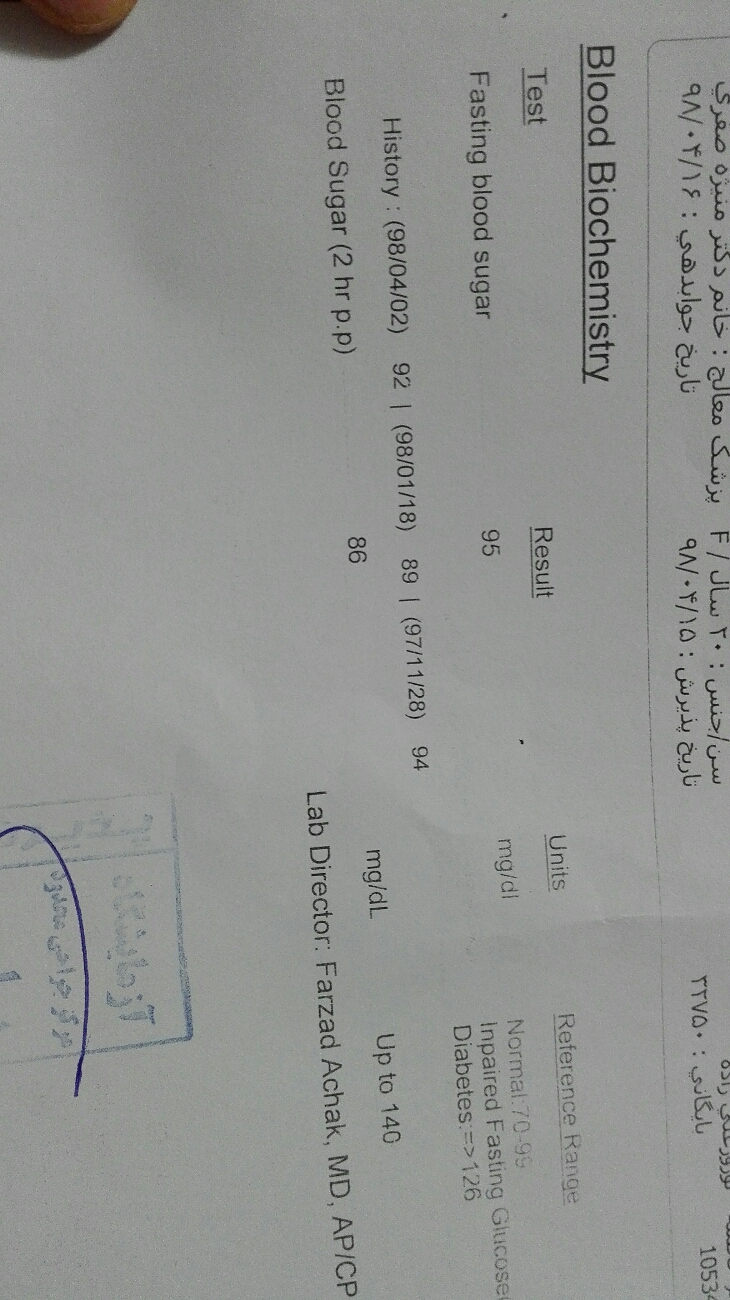 پزشک معالج : خانم دکتر منیژه صفري سن/جنس : ۲۰ سال / F
تاریخ جوابدهي : ۹۸/۰۴/۱۶ تاریخ پذیرش : ۹۸/۰۴/۱۵ بایگاني : ۳۲۷۵۰
Blood Biochemistry
Test Result Units Reference Range
Fasting blood sugar 95 mg/dl Normal:70-99
Inpaired Fasting
Diabetes:=>126
History : (98/04/02) 92 | (98/01/18) 89 | (97/11/28) 94
Blood Sugar (2 hr p.p) 86 mg/dL Up to 140
Lab Director: Farzad Achak, MD, AP/CP
آزمایشگاه
مرکز جراحی محدود